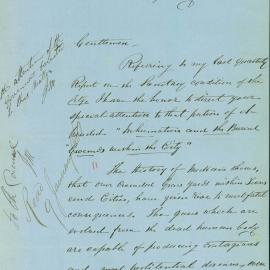 Gentlemen
Referring to my last Quarterly
Report on the Sanitary condition of the
City I have the honor to direct your
special attention to that portion of it
headed "Inhumations and the Burial
Grounds within the City"
11
The history of Medicine shows,
that our crowded Grave yards within Towns
and Cities, have given rise to most fatal
consequences. The gases which are
evolved from the dead human body
are capable of producing Contagious
and most pestilential diseases,
the attention of
to this matter